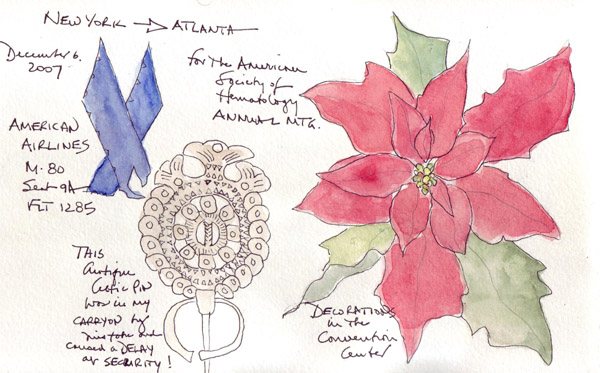 NEW YORK → ATLANTA
December 6,
2007
For The American
Society of
Hematology
ANNUAL MTG.
AMERICAN
AIRLINES
M·80
Seat 9A
FLT 1285
THIS
Antique
Celtic PIN
was in my
CARRYON by
mistake and
caused a DELAY
at SECURITY!
DECORATIONS
in The
Convention
Center